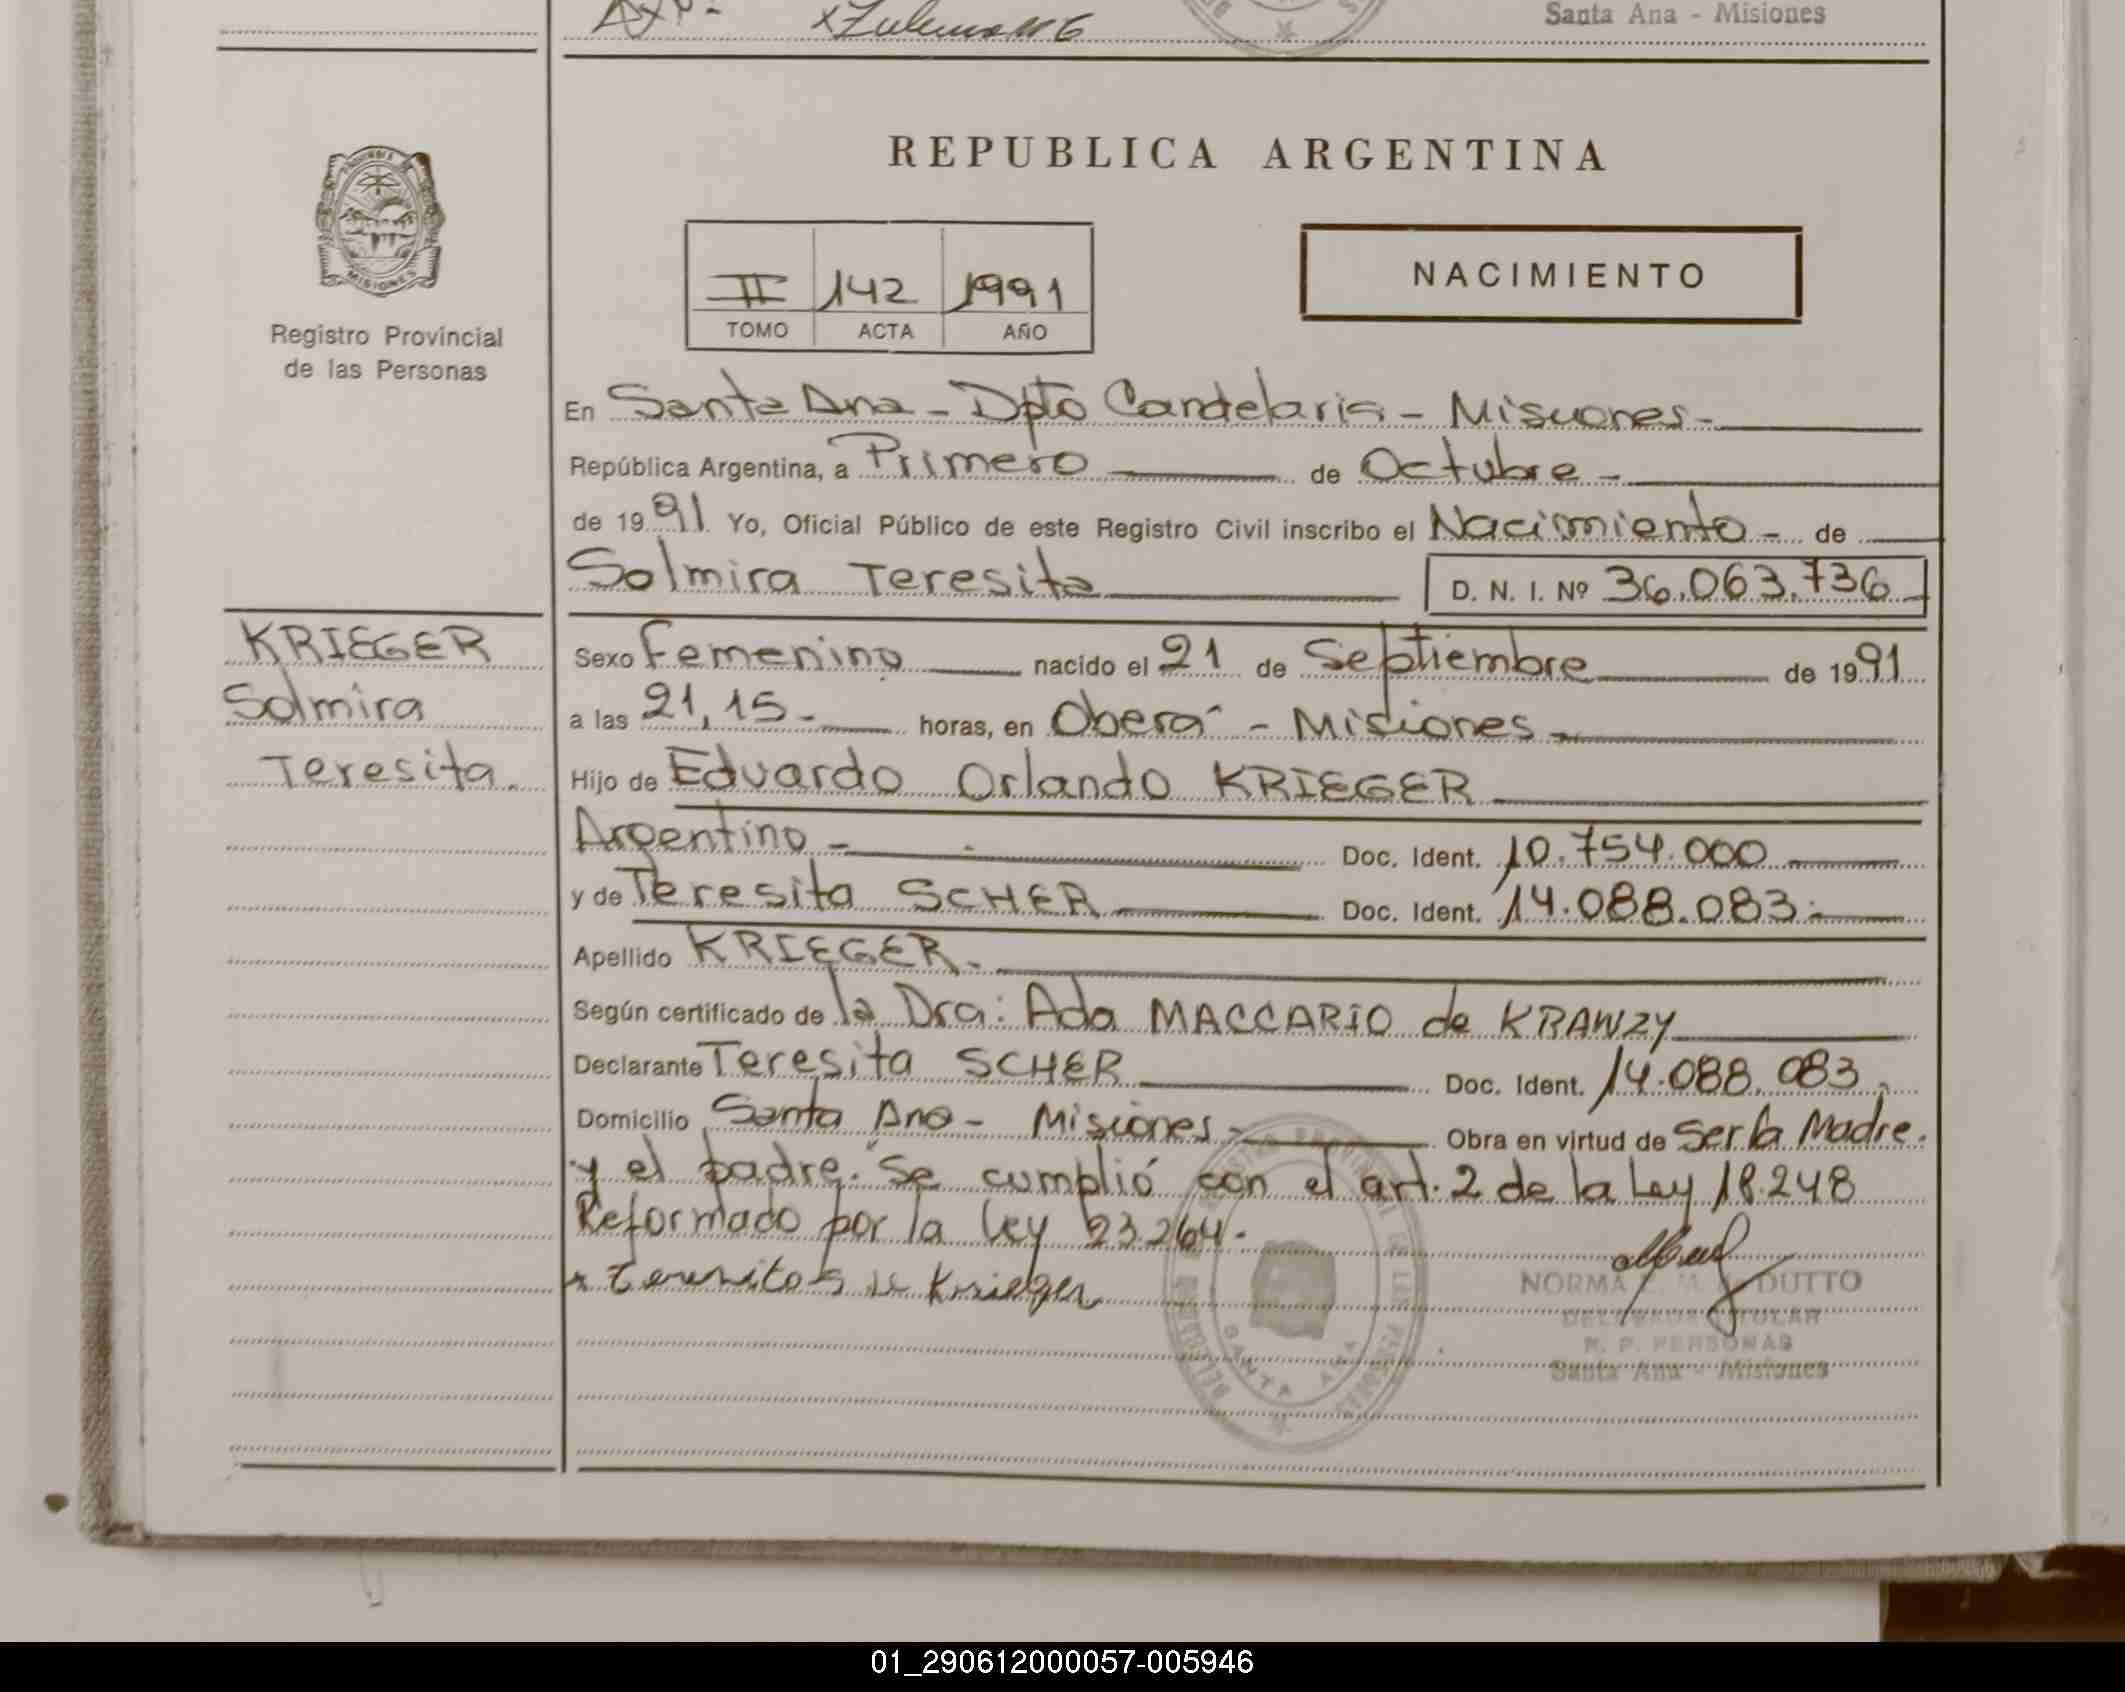 Santa Ana - Misiones
REPUBLICA ARGENTINA
MISIONES
Registro Provincial
de las Personas
II 142 1991
TOMO ACTA AÑO
NACIMIENTO
En Santa Ana - Dpto Candelaria - Misiones -
República Argentina, a Primero de Octubre -
de 1991 Yo, Oficial Público de este Registro Civil inscribo el Nacimiento - de
Solmira Teresita D. N. I. Nº 36.063.736
KRIEGER
Solmira
Teresita.
Sexo Femenino nacido el 21 de Septiembre de 1991
a las 21,15 - horas, en Oberá - Misiones
Hijo de Eduardo Orlando KRIEGER
Argentino - Doc. Ident. 10.754.000
y de Teresita SCHER Doc. Ident. 14.088.083.-
Apellido KRIEGER.
Según certificado de la Dra: Ada MACCARIO de KRAWZY
Declarante Teresita SCHER Doc. Ident. 14.088.083.
Domicilio Santa Ana - Misiones - Obra en virtud de Ser la Madre.
y el padre. Se cumplió con el art. 2 de la Ley 18.248
Reformado por la ley 23.264.
x Teresita S de Krieger
NORMA DUTTO
TITULAR
R. P. PERSONAS
Santa Ana - Misiones
SANTA ANA
01_290612000057-005946